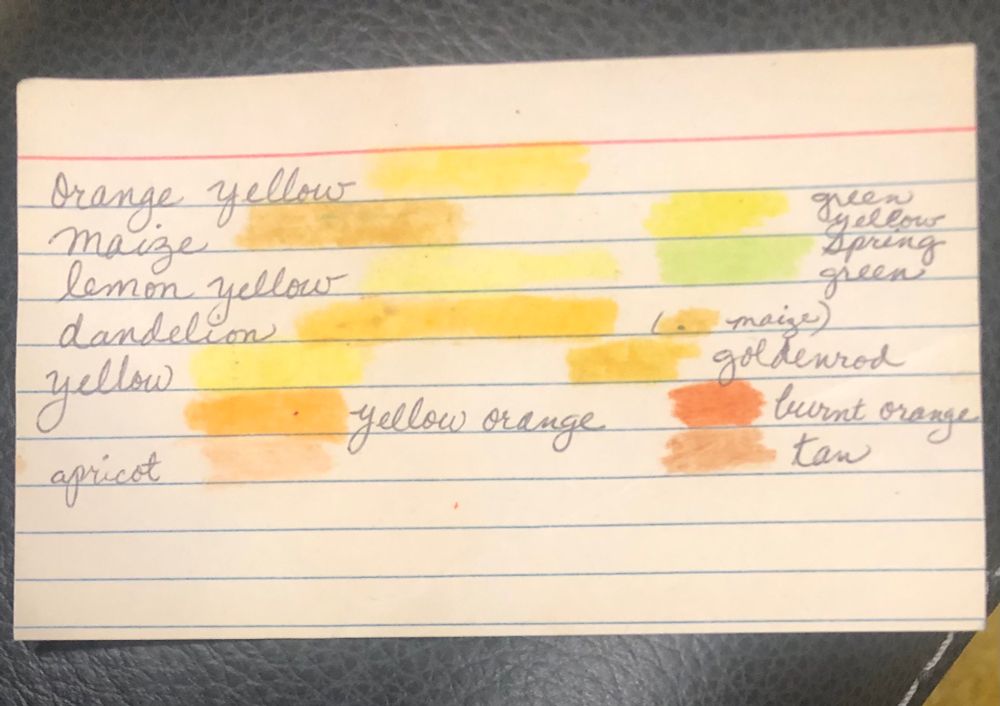 Orange yellow
maize
lemon yellow
dandelion
yellow
yellow orange
apricot
green
yellow
Spring
green
(. maize)
goldenrod
burnt orange
tan